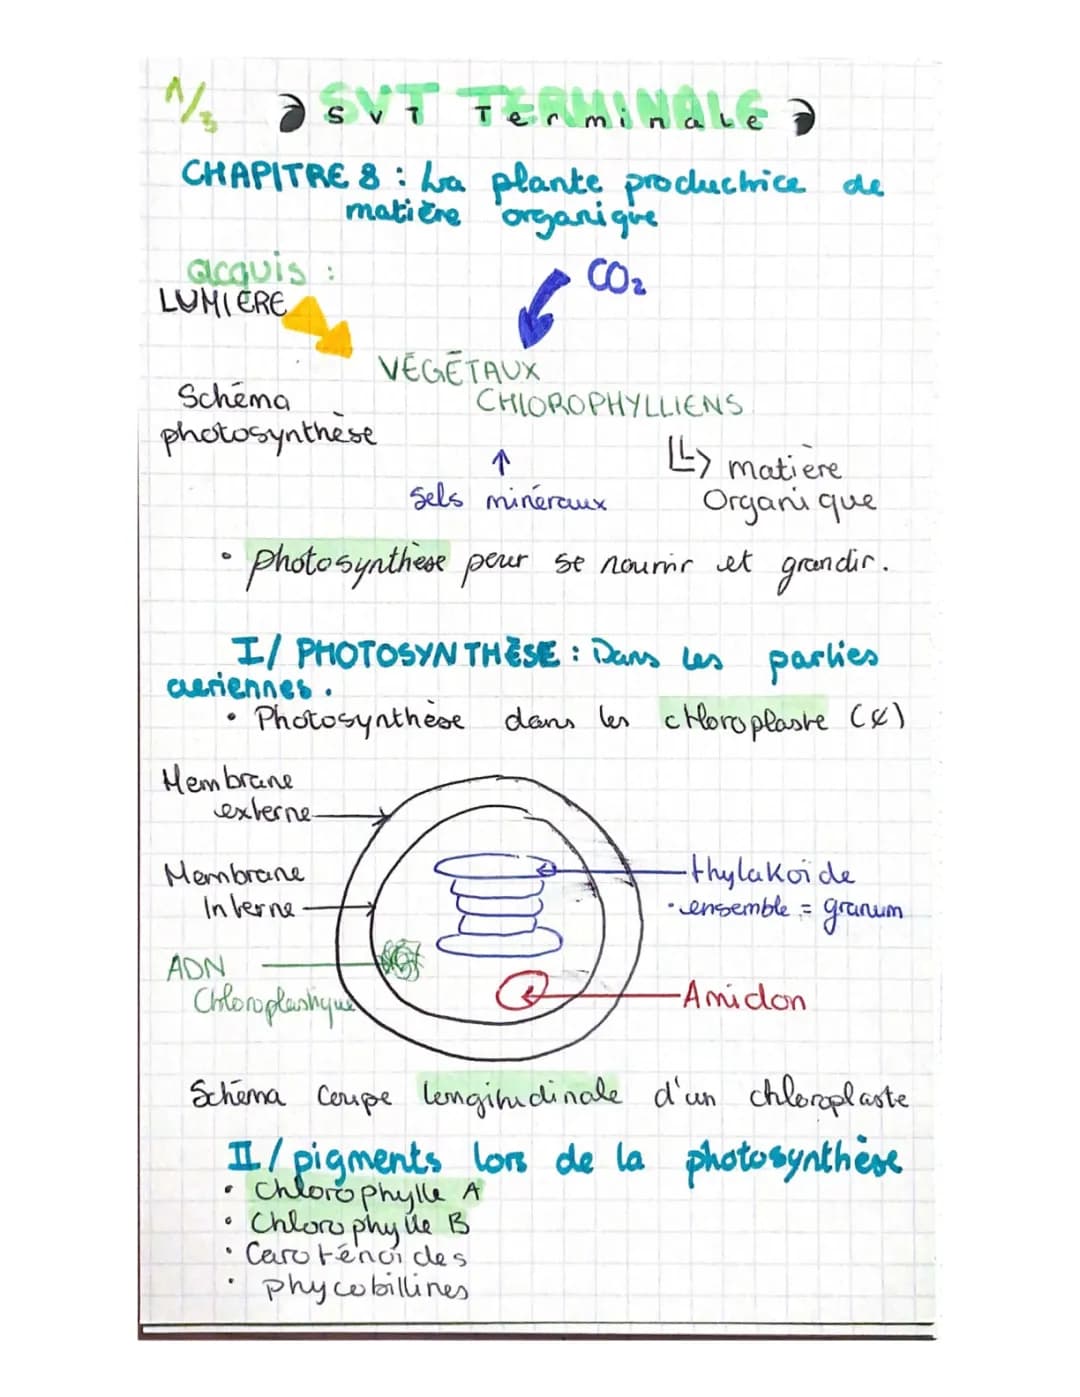 1/3
SVT TERMINALE
SVT Terminale
CHAPITRE 8 : La plante productrice de
matière organique
acquis :
LUMIERE
CO₂
VÉGÉTAUX
CHLOROPHYLLIENS
Schéma
photosynthèse
↑
Sels minéraux
matière
Organique
• photosynthèse pour se nourrir et grandir.
I/ PHOTOSYNTHÈSE : Dans les parties
aeriennes.
• Photosynthèse dans les chloroplaste
Membrane
externe
Membrane
Interne
ADN
Chloroplastique
thylakoïde
• ensemble = granum
Amidon
Schéma Coupe longitudinale d'un chloroplaste
II/ pigments lors de la photosynthèse
• Chlorophylle A
• Chlorophylle B
• Caroténoïdes
• phycobillines